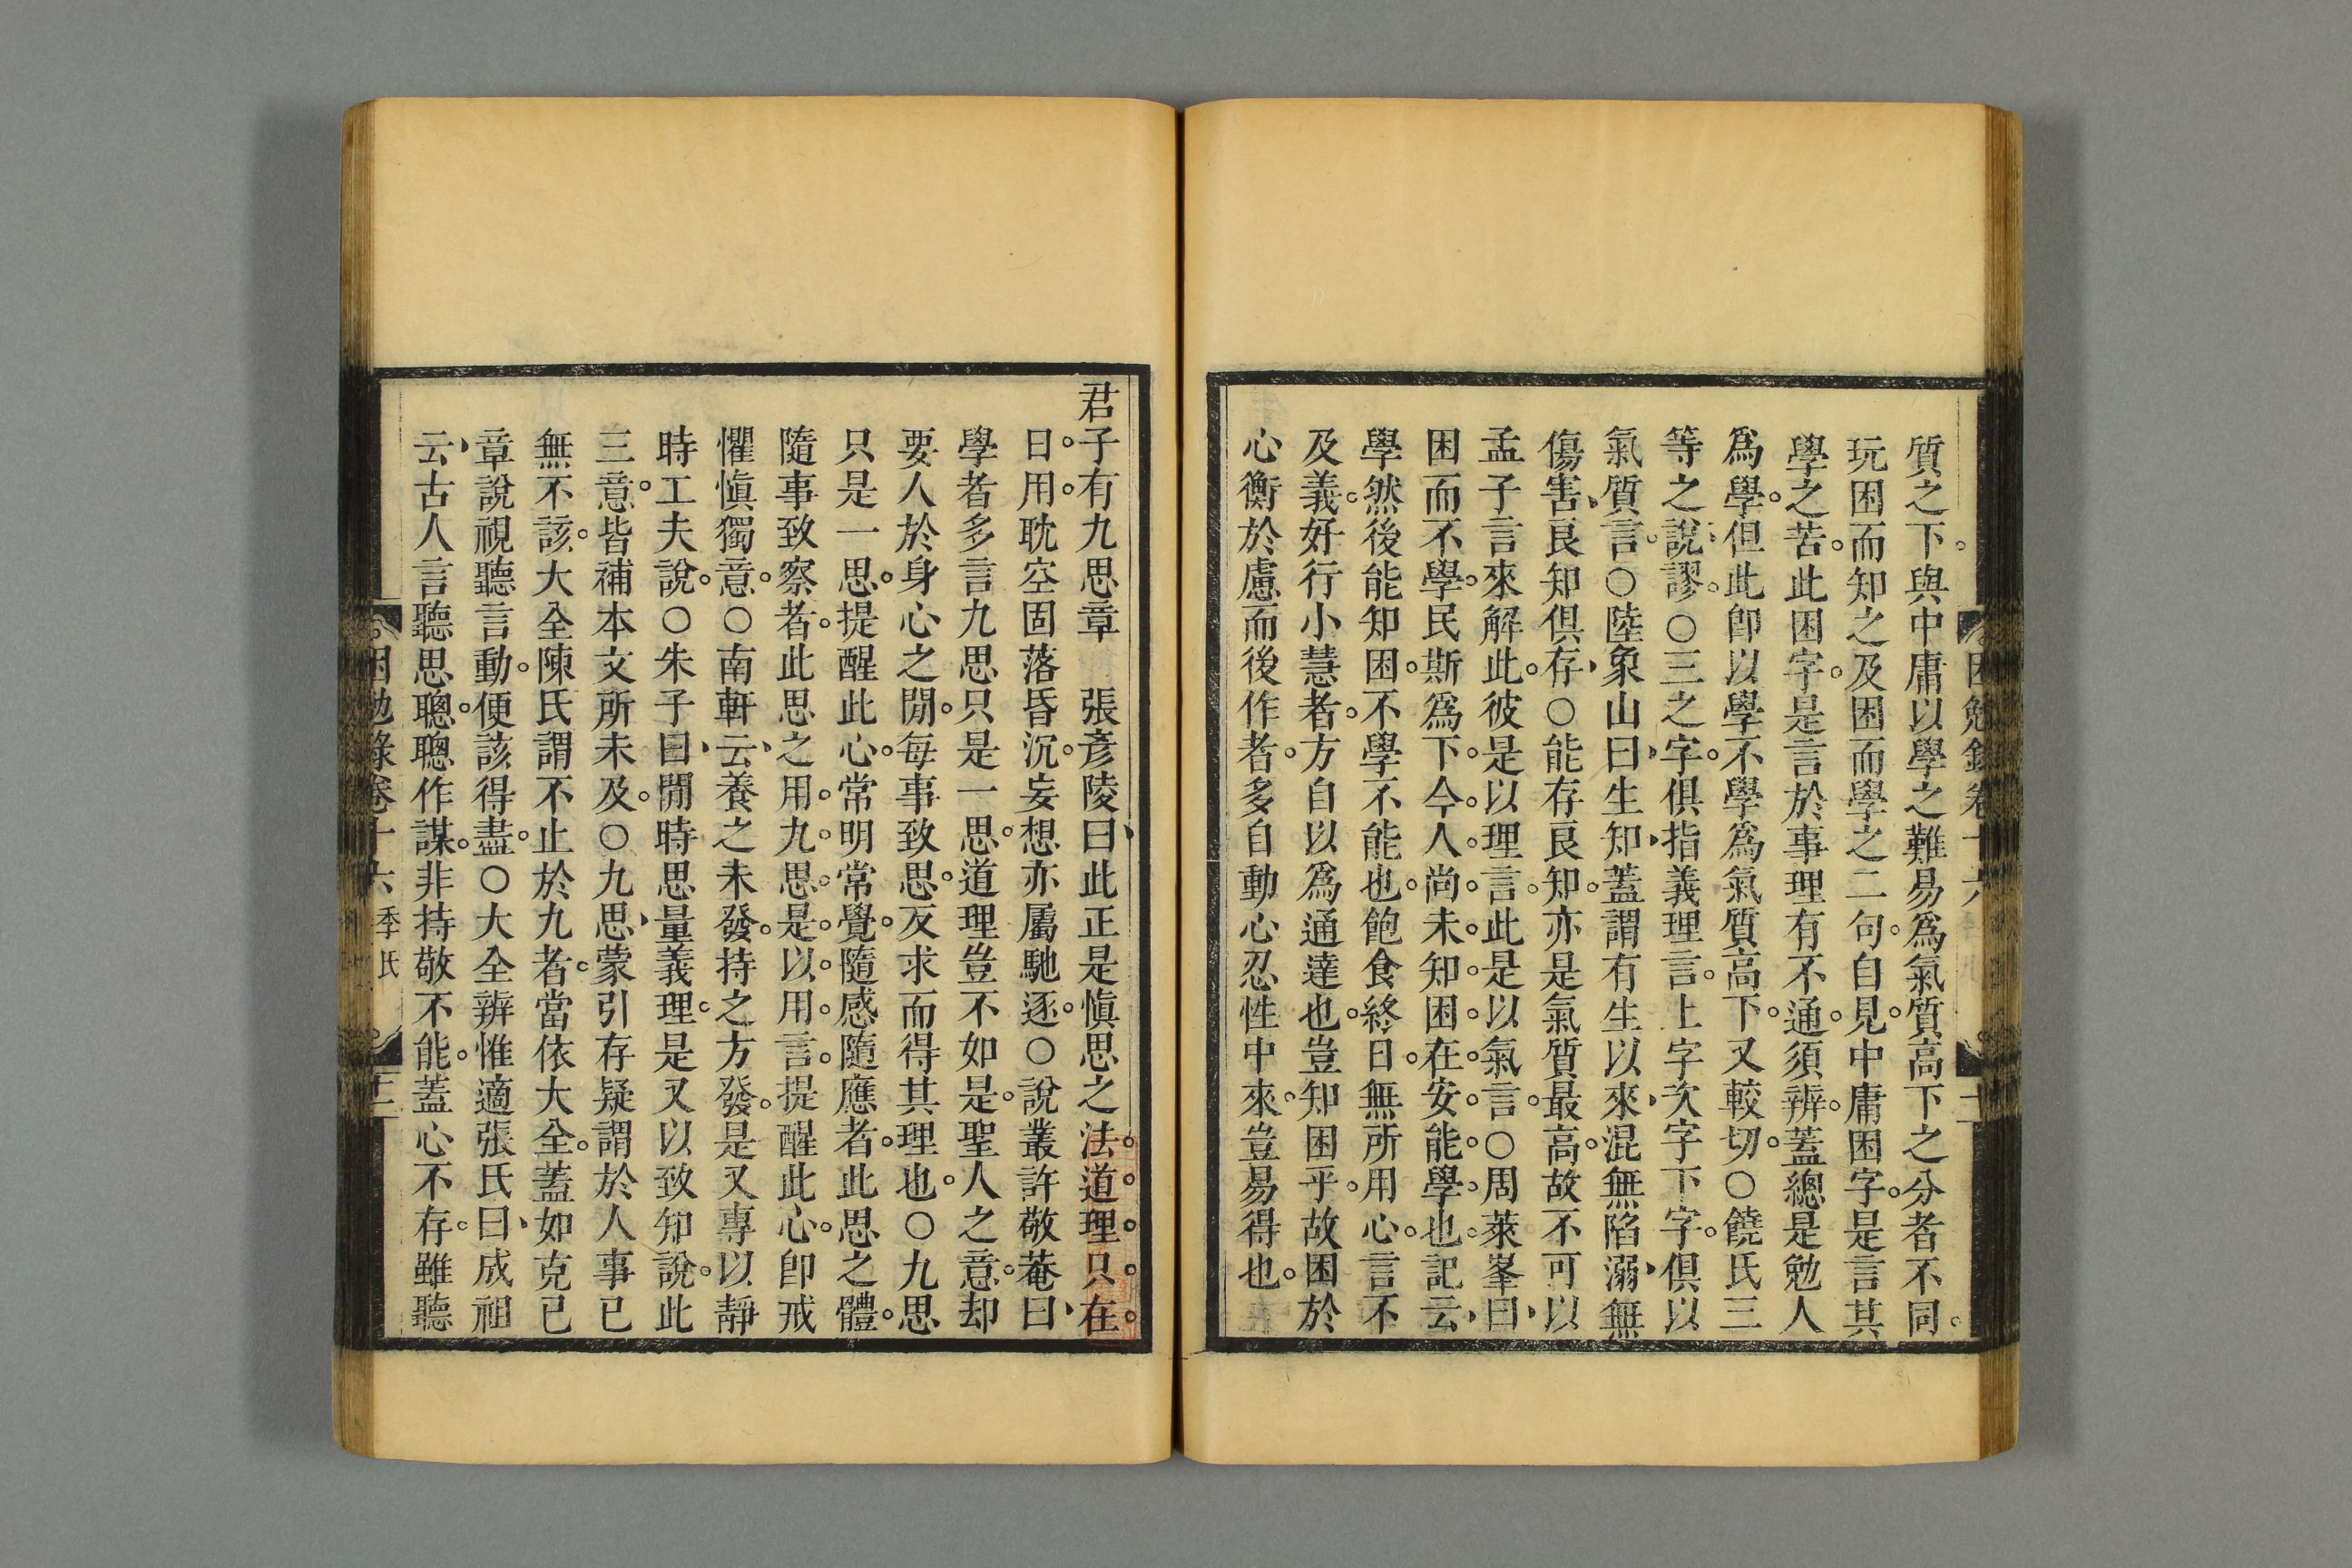 質之下與中庸以學之難易爲氣質高下之分者不同
玩困而知之及困而學之二句自見中庸困字是言其
學之苦此困字是言於事理有不通須辨蓋總是勉人
爲學但此卽以學不學爲氣質高下又較切○饒氏三
等之說謬○三之字俱指義理言上字次字下字俱以
氣質言○陸象山曰生知蓋謂有生以來混無陷溺無
傷害良知俱存○能存良知亦是氣質最高故不可以
孟子言來解此彼是以理言此是以氣言○周萊峯曰
困而不學民斯爲下今人尚未知困在安能學也記云
學然後能知困不學不能也飽食終日無所用心言不
及義好行小慧者方自以爲通達也豈知困乎故困於
心衡於慮而後作者多自動心忍性中來豈易得也
困勉錄卷十六
君子有九思章 張彥陵曰此正是愼思之法道理只在
日用耽空固落昏沉妄想亦屬馳逐○說叢許敬菴曰
學者多言九思只是一思道理豈不如是聖人之意却
要人於身心之閒每事致思反求而得其理也○九思
只是一思提醒此心常明常覺隨感隨應者此思之體
隨事致察者此思之用九思是以用言提醒此心卽戒
懼愼獨意○南軒云養之未發持之方發是又專以靜
時工夫說○朱子曰閒時思量義理是又以致知說此
三意皆補本文所未及○九思蒙引存疑謂於人事已
無不該大全陳氏謂不止於九者當依大全蓋如克已
章說視聽言動便該得盡○大全辨惟適張氏曰成祖
云古人言聽思聰聰作謀非持敬不能蓋心不存雖聽
困勉錄卷十六 季氏 十二